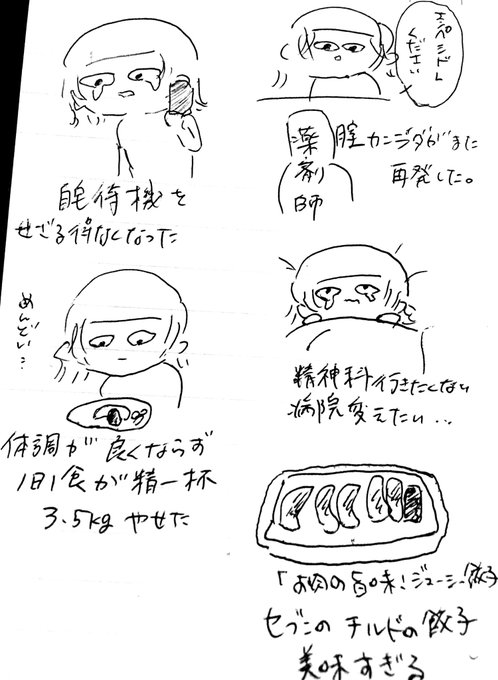 エンペシドL
ください
薬剤師
膣カンジダがまた
再発した。
精神科行きたくない
病院変えたい…
「お肉の旨味!ジューシー餃子
セブンの チルドの餃子
美味すぎる
自宅待機を
せざる得なくなった
めんどい…
体調が良くならず
1日1食が精一杯
3.5kg やせた